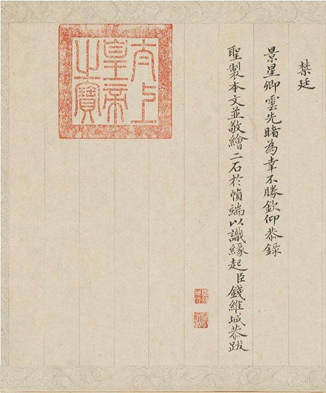 禁廷
景星卿雲先睹為幸不勝欽仰恭錄
聖製本文並敬繪二石於幀端以識緣起臣錢維城恭跋
太上
皇帝
之寶